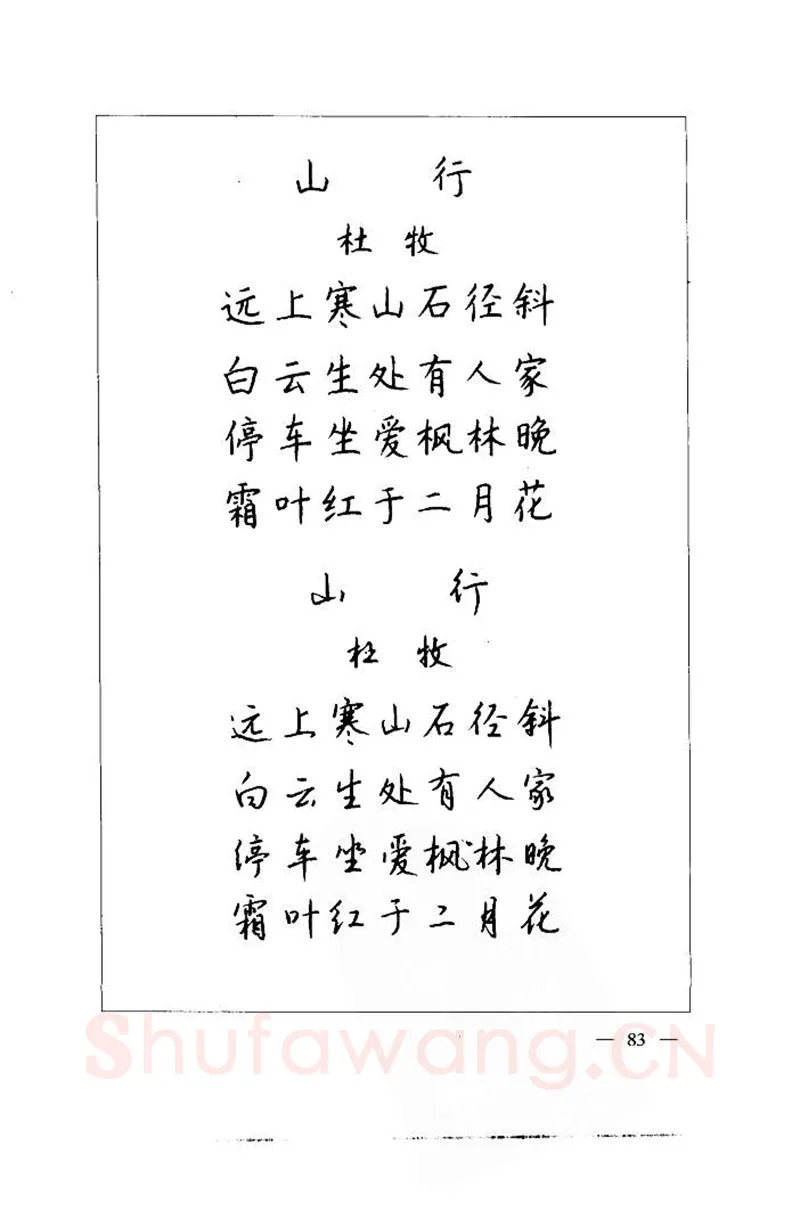 山 行
杜 牧
远上寒山石径斜
白云生处有人家
停车坐爱枫林晚
霜叶红于二月花
山 行
杜 牧
远上寒山石径斜
白云生处有人家
停车坐爱枫林晚
霜叶红于二月花
— 83 —
Shufawang.CN